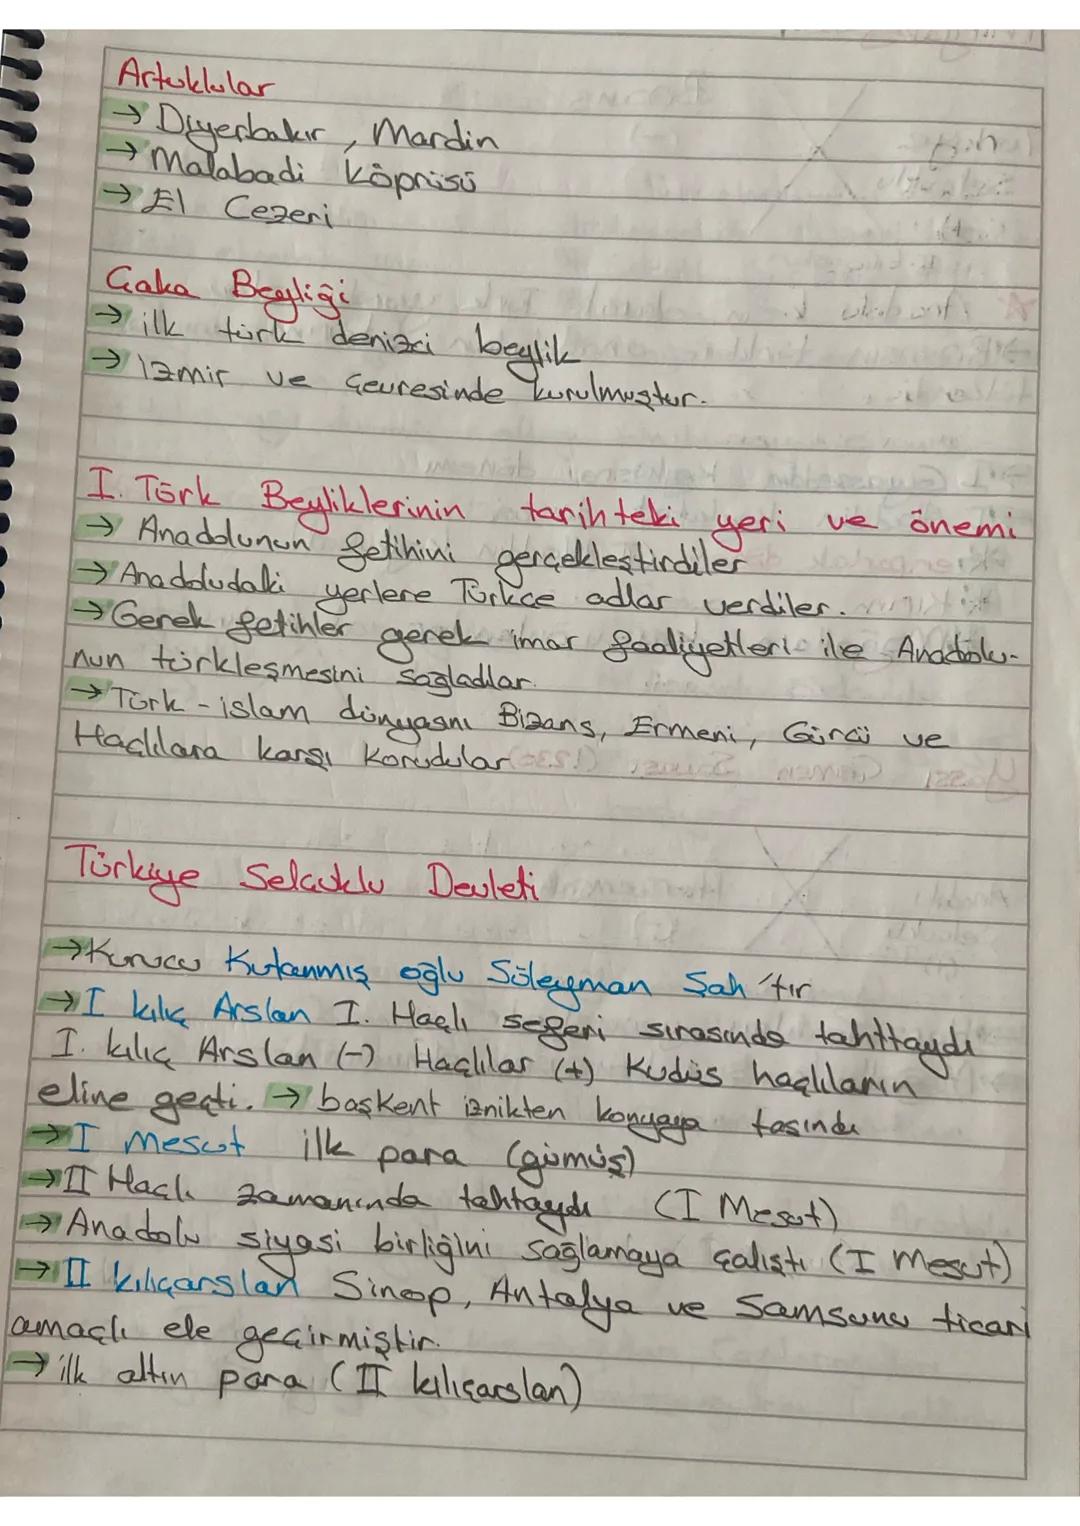 Artuklular
→ Diyerbakır, Mardin
→ Malabadi Köprüsü
→ El Cezeri
Çaka Beyliği
→ ilk türk denizci beylik
→ İzmir ve Çevresinde kurulmuştur.
I. Türk Beyliklerinin tarihteki yeri ve önemi
→ Anadolunun fetihini gerçekleştirdiler
→ Anadoludaki yerlere Türkçe adlar verdiler.
→ Gerek fetihler gerek imar faaliyetleri ile Anadolu-
nun türkleşmesini sağladılar.
→ Türk-islam dünyasını Bizans, Ermeni, Gürcü ve
Haçlılara karşı Korudular
Türkiye Selcuklu Devleti
→ Kurucu Kutanmış oğlu Süleyman Şah'tır
→ I kılıç Arslan I. Haçlı seferi sırasında tahttaydı
I. kılıç Arslan (-) Haçlılar (+) Kudüs haçlıların
eline geçti. → başkent iznikten konyaya tasındı
→ I Mesut ilk para (gümüş)
→ II Haçlı zamanında tahtaydı (I Mesut)
→ Anadolu siyasi birliğini sağlamaya çalıştı (I Mesut)
→ II kılıçarslan Sinop, Antalya ve Samsunu ticari
amaçlı ele geçirmiştir.
→ ilk altın para (II kılıçarslan)